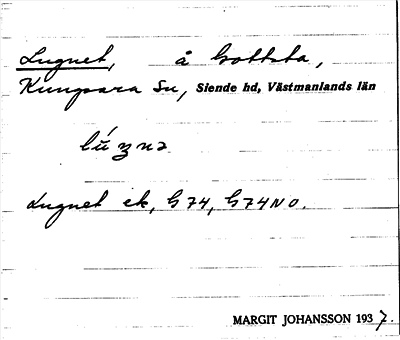 Lugnet, å Gottsta,
Kungsara Sn, Siende hd, Västmanlands län
Lugnet ek, G74, G74NO.
MARGIT JOHANSSON 1937.